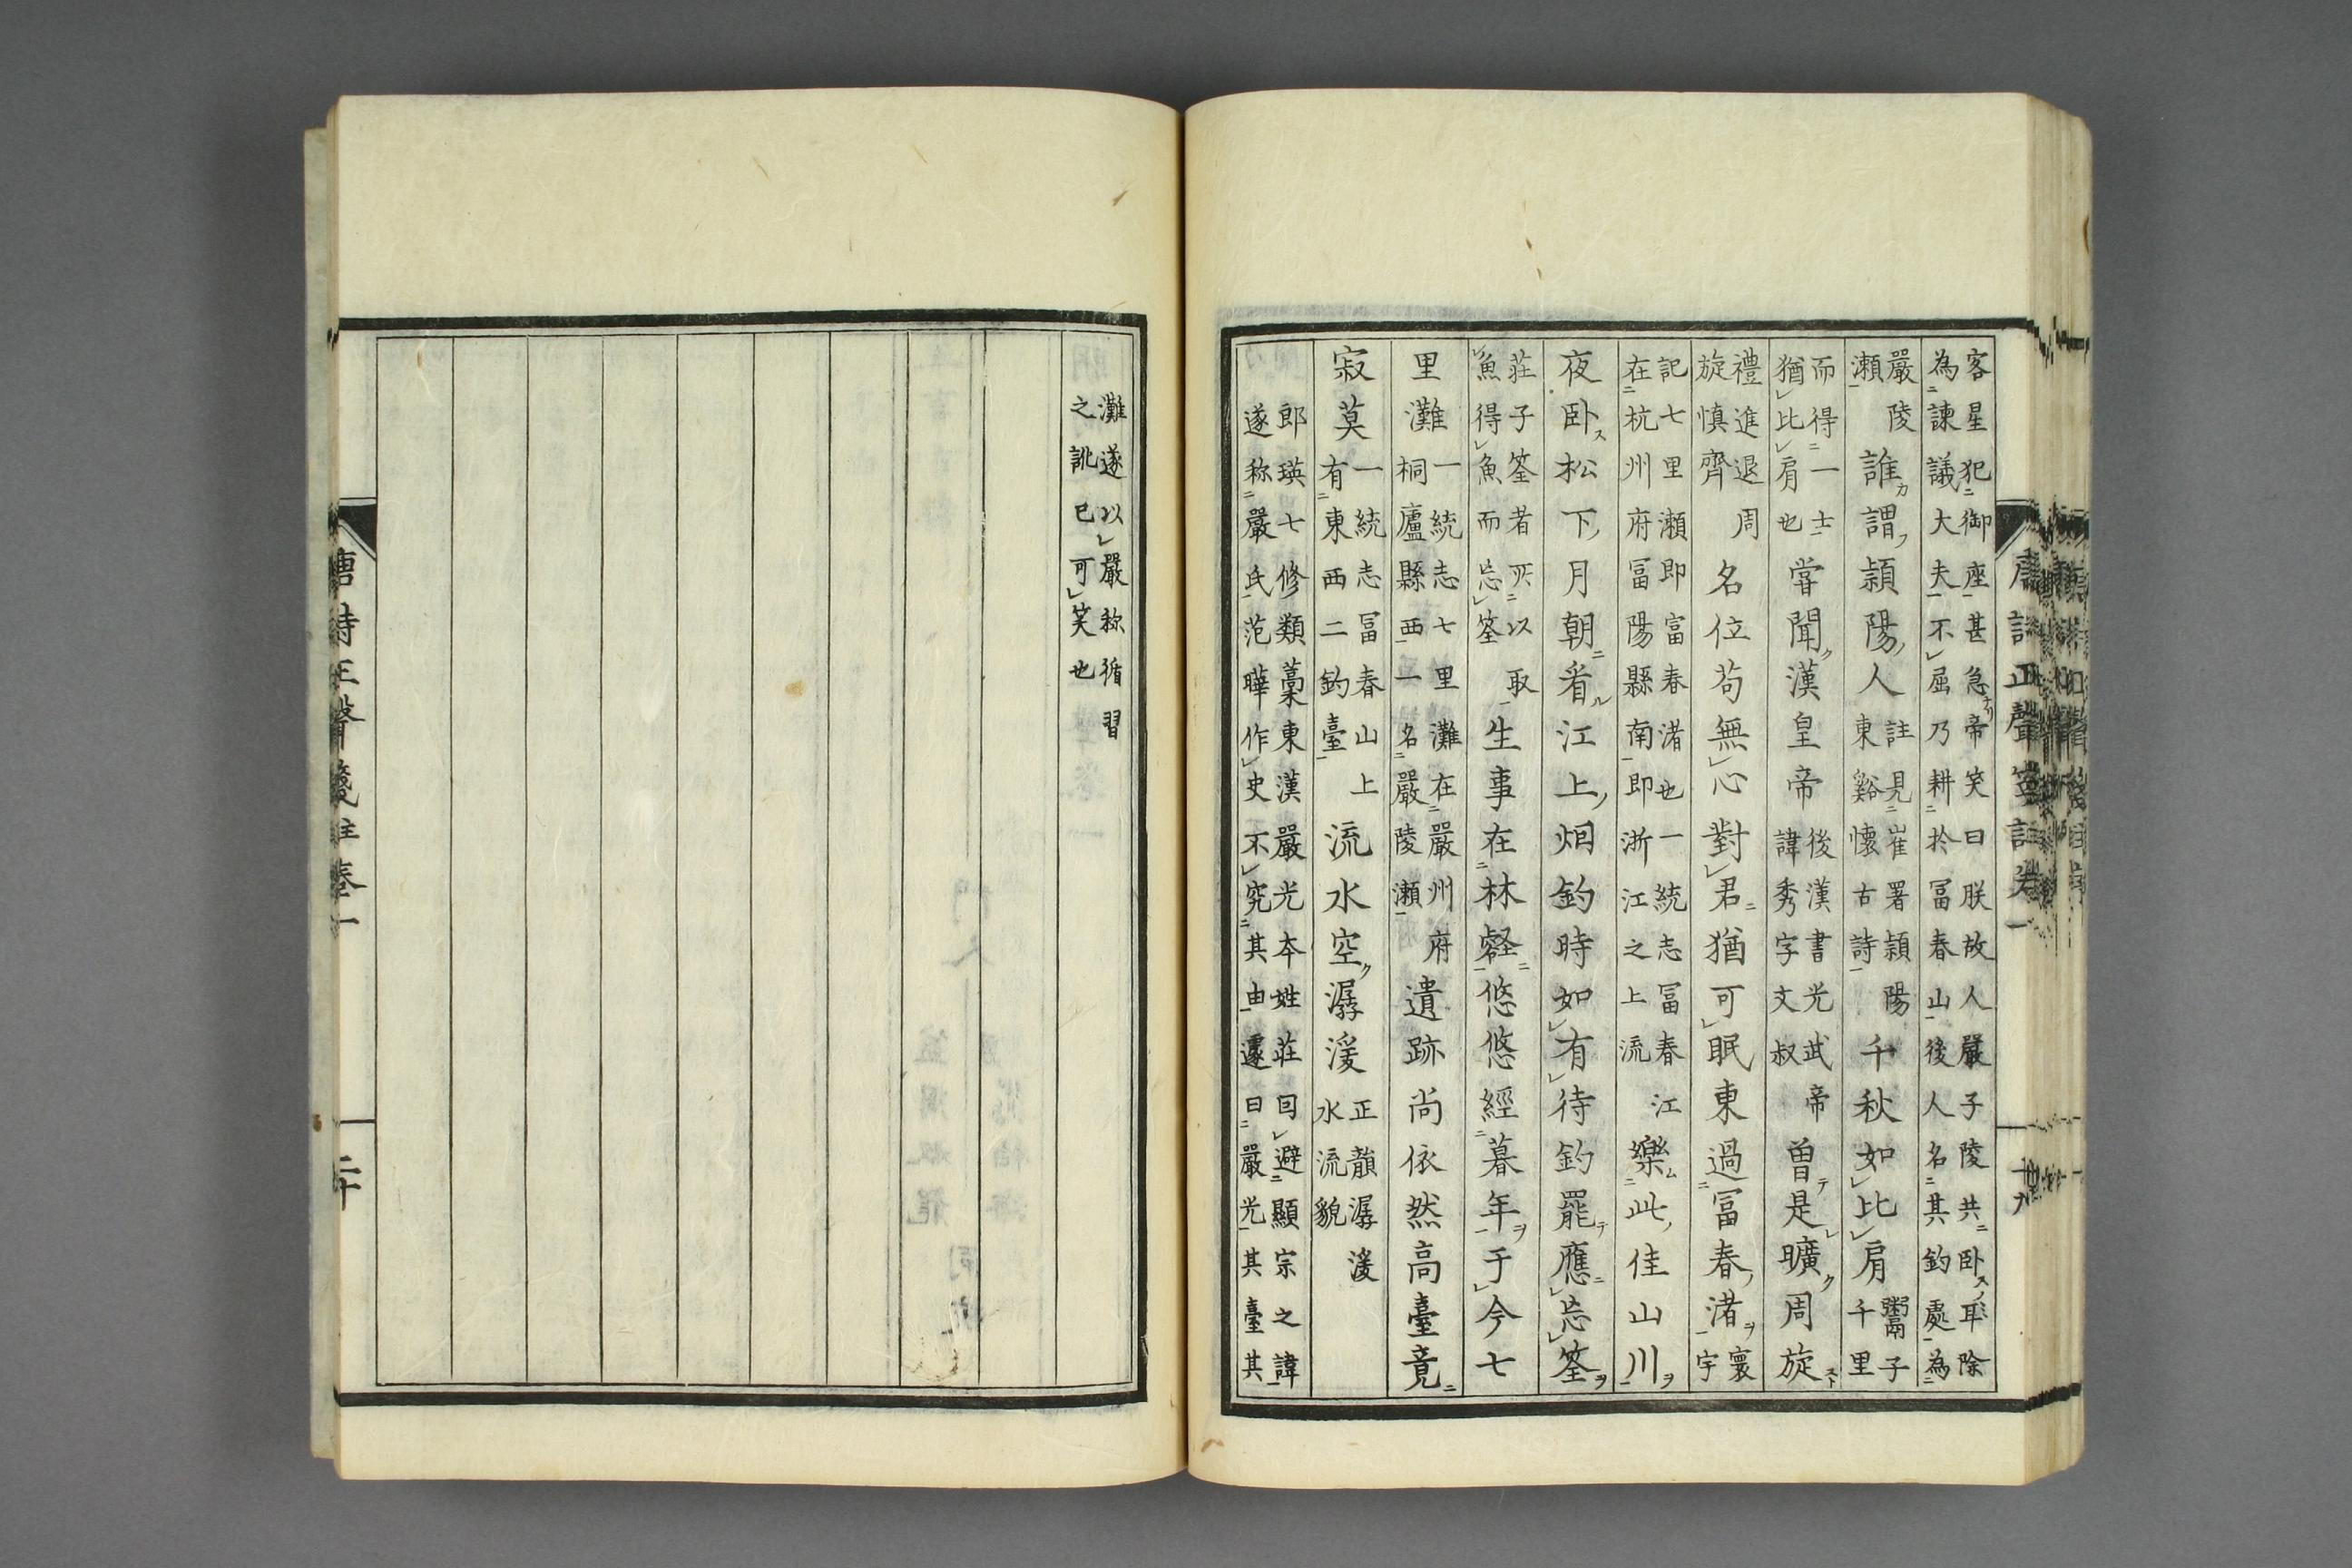 唐詩正聲箋註卷一
十九
客星犯御座甚急帝笑曰朕故人嚴子陵共卧耳除
為諫議大夫不屈乃耕於冨春山後人名其釣處為
嚴陵
瀬
誰謂潁陽人
註見崔署潁陽
東谿懷古詩
千秋如比肩
鬻子
千里
而得一士
猶比肩也
嘗聞漢皇帝
後漢書光武帝
諱秀字文叔
曽是曠周旋
禮進退周
旋慎齊
名位苟無心對君猶可眠東過冨春渚
寰
宇
記七里瀬即富春渚也一統志冨春江
在杭州府冨陽縣南即浙江之上流
樂此佳山川
夜卧松下月朝看江上烟釣時如有待釣罷應忘筌
莊子筌者所以取
魚得魚而忘筌
生事在林壑悠悠經暮年于今七
里灘
一統志七里灘在嚴州府
桐廬縣西一名嚴陵瀬
遺跡尚依然高臺竟
寂莫
一統志冨春山上
有東西二釣臺
流水空潺湲
正韻潺湲
水流貌
郎瑛七修類藁東漢嚴光本姓莊因避顯宗之諱
遂称嚴氏范曄作史不究其由遽曰嚴光其臺其
灘遂以嚴称循習
之訛已可笑也
唐詩正聲箋註卷一
二十